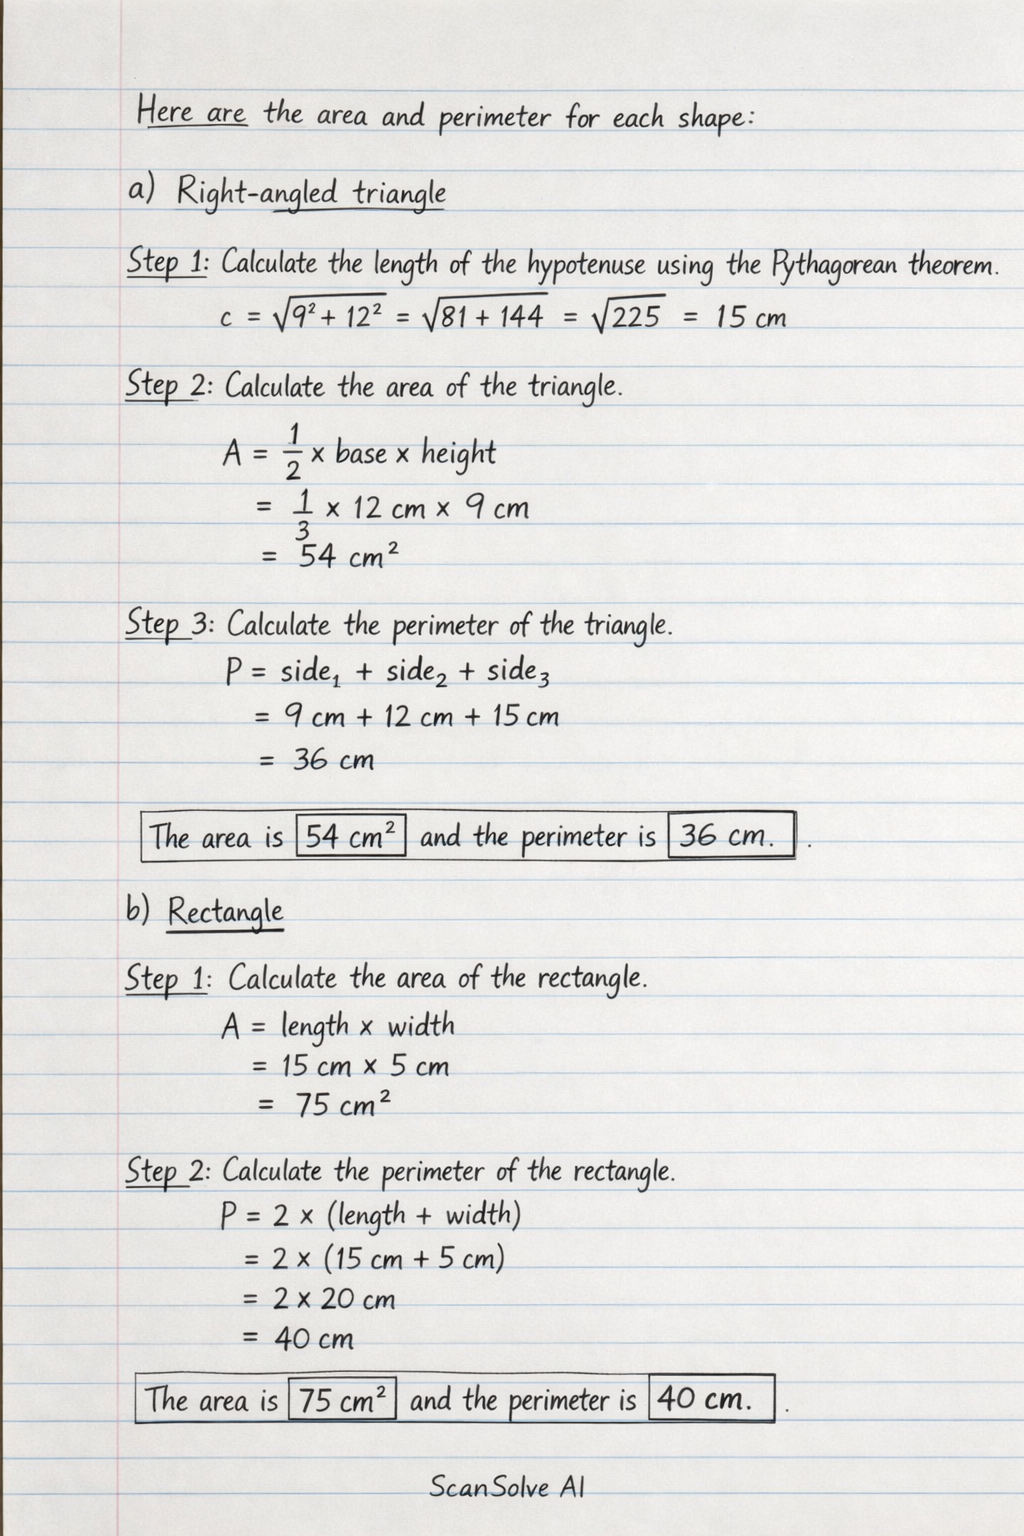 Here are the area and perimeter for each shape:
a) Right-angled triangle
Step 1: Calculate the length of the hypotenuse using the Pythagorean theorem.
c = √(9² + 12²) = √(81 + 144) = √225 = 15 cm
Step 2: Calculate the area of the triangle.
A = 1/2 × base × height
= 1/3 × 12 cm × 9 cm
= 54 cm²
Step 3: Calculate the perimeter of the triangle.
P = side₁ + side₂ + side₃
= 9 cm + 12 cm + 15 cm
= 36 cm
The area is 54 cm² and the perimeter is 36 cm. .
b) Rectangle
Step 1: Calculate the area of the rectangle.
A = length × width
= 15 cm × 5 cm
= 75 cm²
Step 2: Calculate the perimeter of the rectangle.
P = 2 × (length + width)
= 2 × (15 cm + 5 cm)
= 2 × 20 cm
= 40 cm
The area is 75 cm² and the perimeter is 40 cm. .
ScanSolve AI